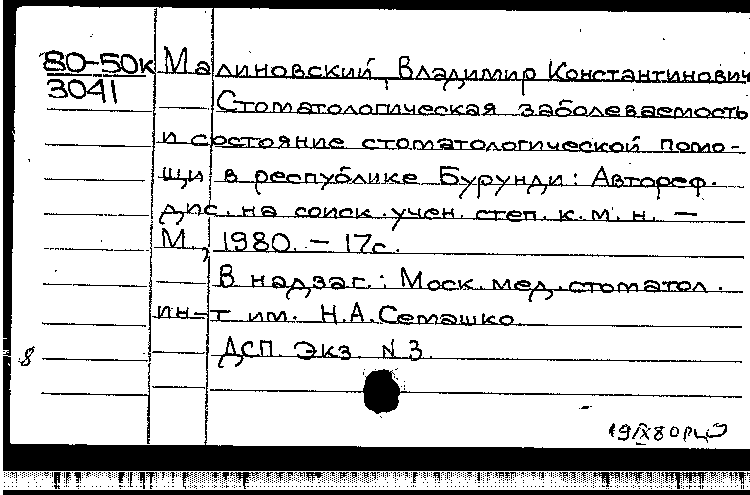 80-50к Малиновский, Владимир Константинович
3041
Стоматологическая заболеваемость
и состояние стоматологической помо-
щи в республике Бурунди: Автореф.
дис. на соиск. учен. степ. к.м.н. —
М., 1980. – 17с.
В надзаг.: Моск. мед. стоматол.
ин-т им. Н.А.Семашко.
ДСП. Экз. N 3.
8
19IX80